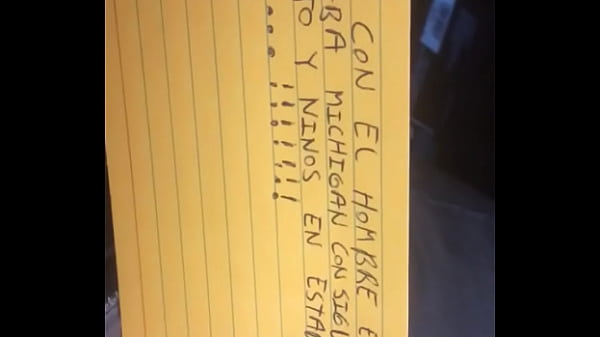 CON EL HOMBRE E
BA MICHIGAN CON SIGU
TO Y NINOS EN ESTA
... !!!!!!!